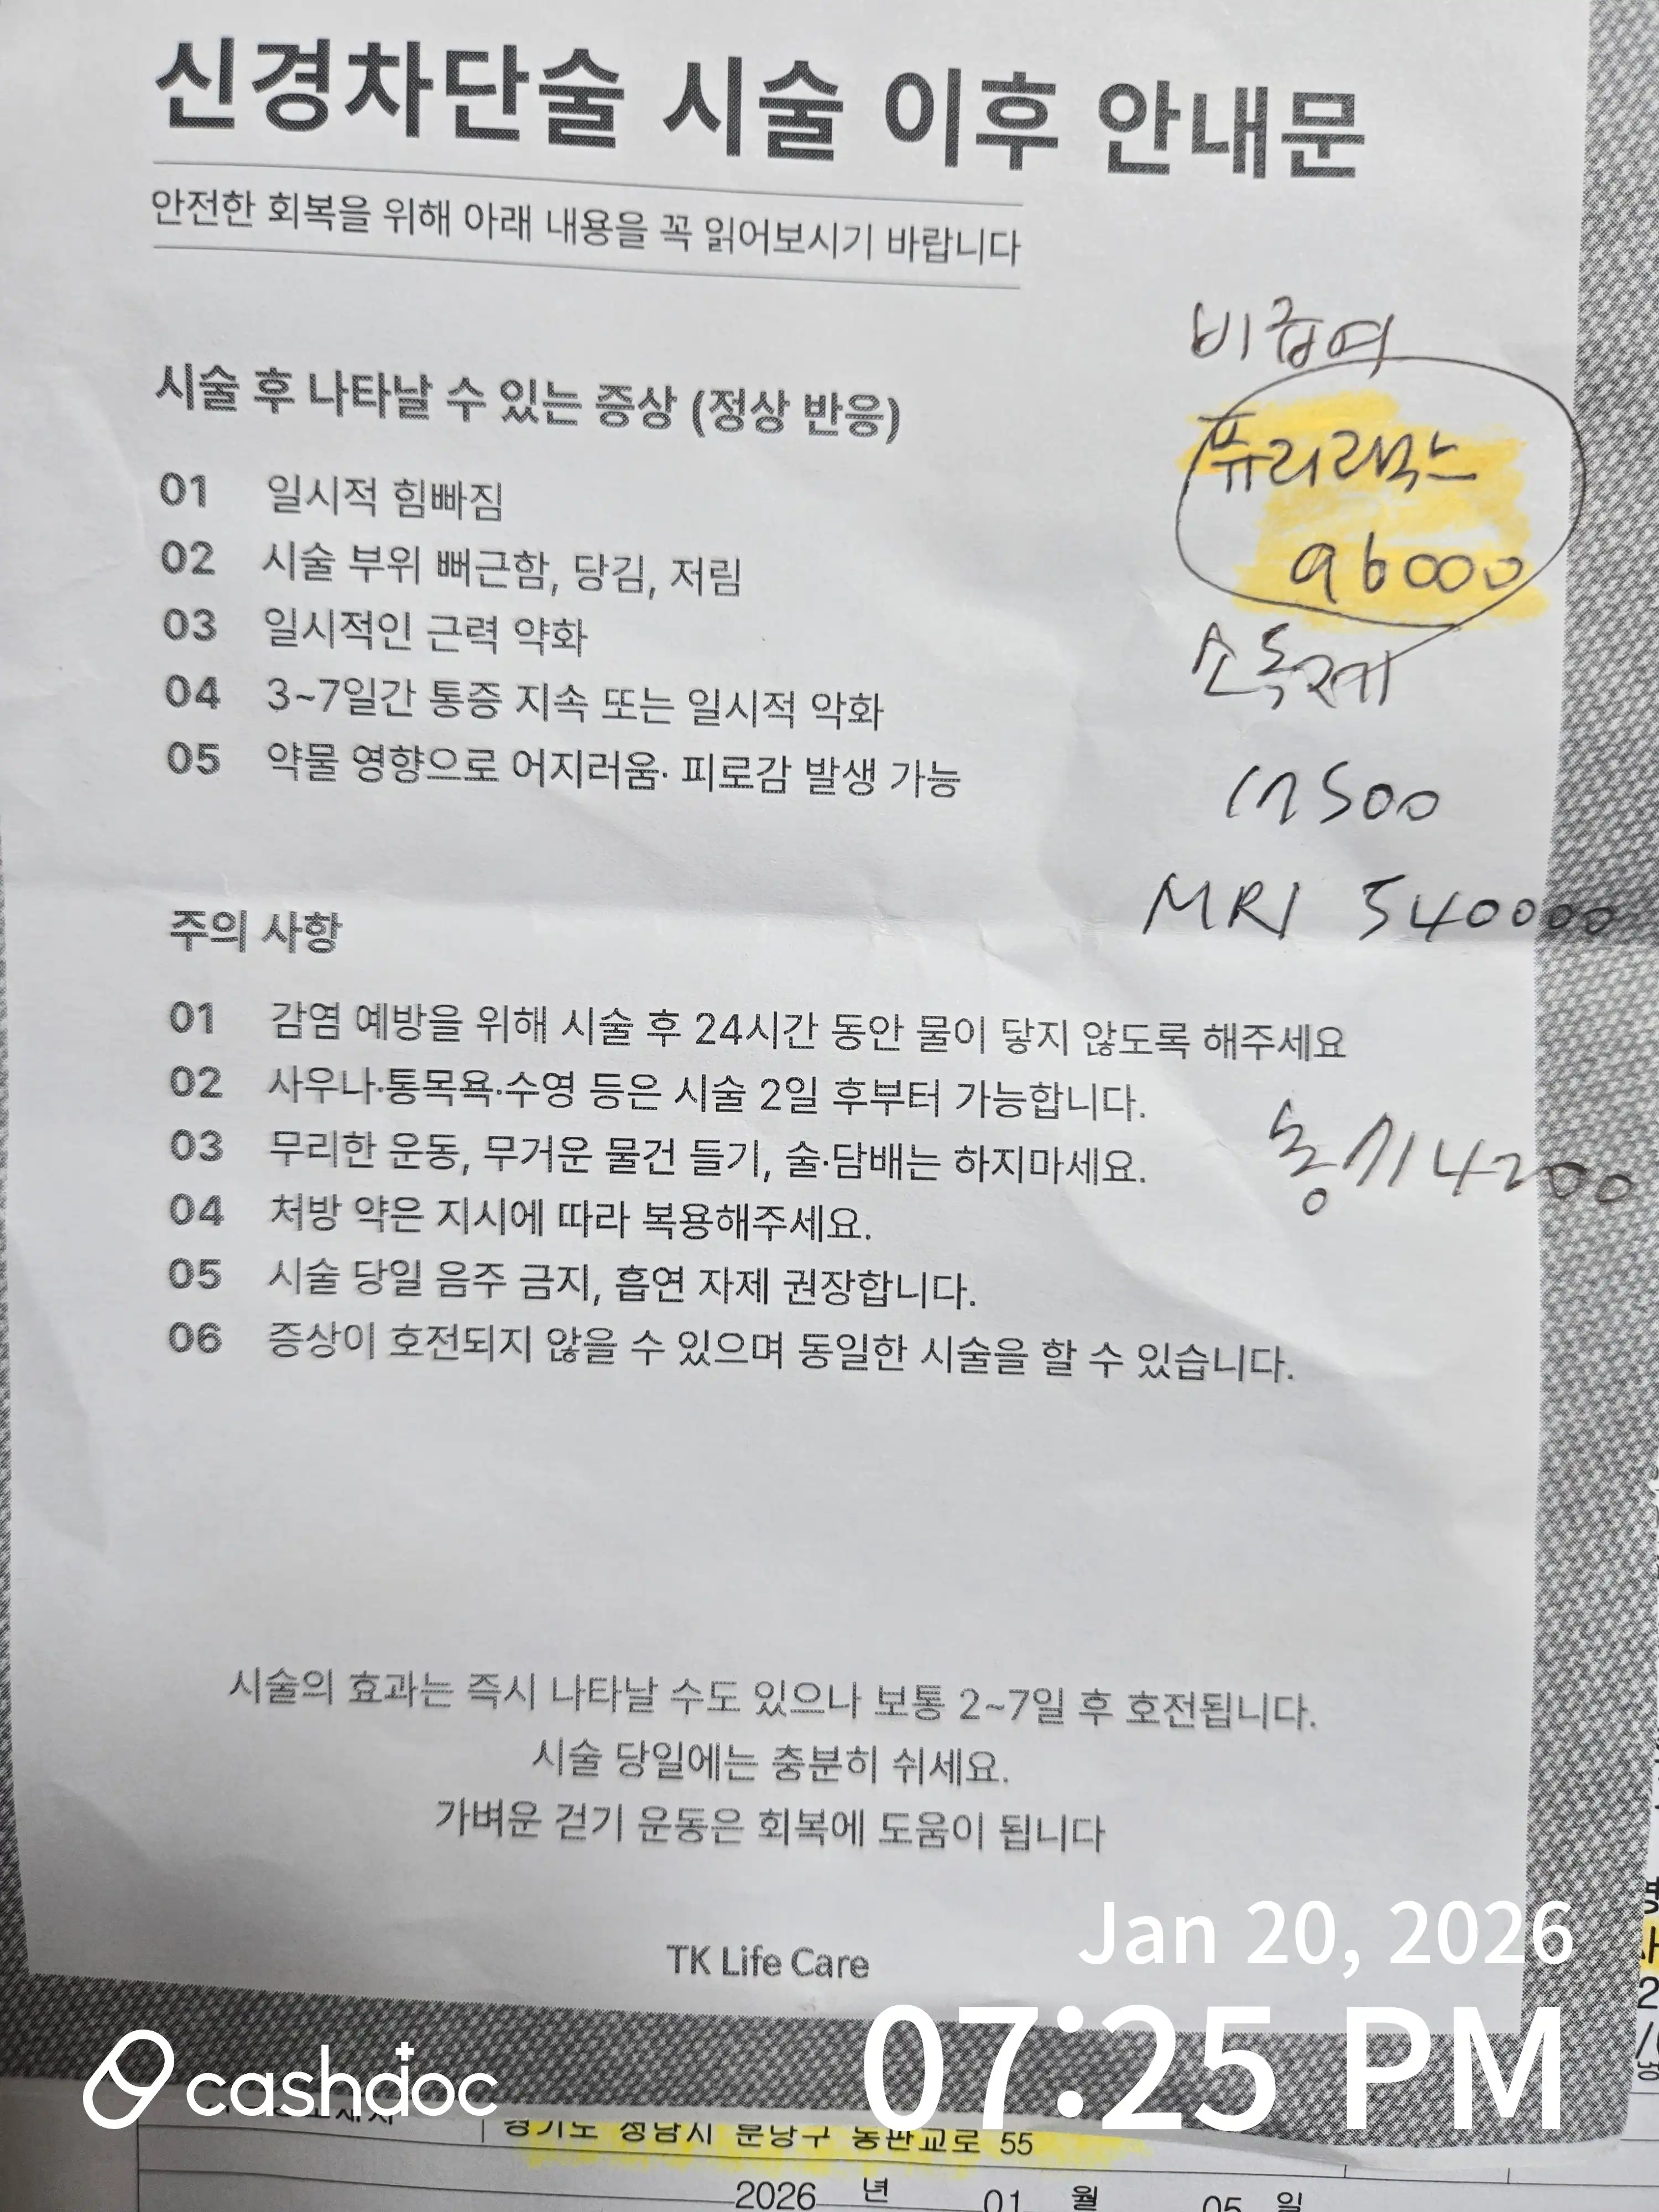 신경차단술 시술 이후 안내문
안전한 회복을 위해 아래 내용을 꼭 읽어보시기 바랍니다
비급여
시술 후 나타날 수 있는 증상 (정상 반응)
퓨리락스
96000
01 일시적 힘빠짐
02 시술 부위 뻐근함, 당김, 저림
03 일시적인 근력 약화
소독제
04 3~7일간 통증 지속 또는 일시적 악화
05 약물 영향으로 어지러움· 피로감 발생 가능
17500
MRI 540000
주의 사항
01 감염 예방을 위해 시술 후 24시간 동안 물이 닿지 않도록 해주세요
02 사우나·통목욕·수영 등은 시술 2일 후부터 가능합니다.
03 무리한 운동, 무거운 물건 들기, 술·담배는 하지마세요.
4200
04 처방 약은 지시에 따라 복용해주세요.
05 시술 당일 음주 금지, 흡연 자제 권장합니다.
06 증상이 호전되지 않을 수 있으며 동일한 시술을 할 수 있습니다.
시술의 효과는 즉시 나타날 수도 있으나 보통 2~7일 후 호전됩니다.
시술 당일에는 충분히 쉬세요.
가벼운 걷기 운동은 회복에 도움이 됩니다
TK Life Care
Jan 20, 2026
07:25 PM
cashdoc
경기도 성남시 분당구 동판교로 55
2026 년 01 월 05 일